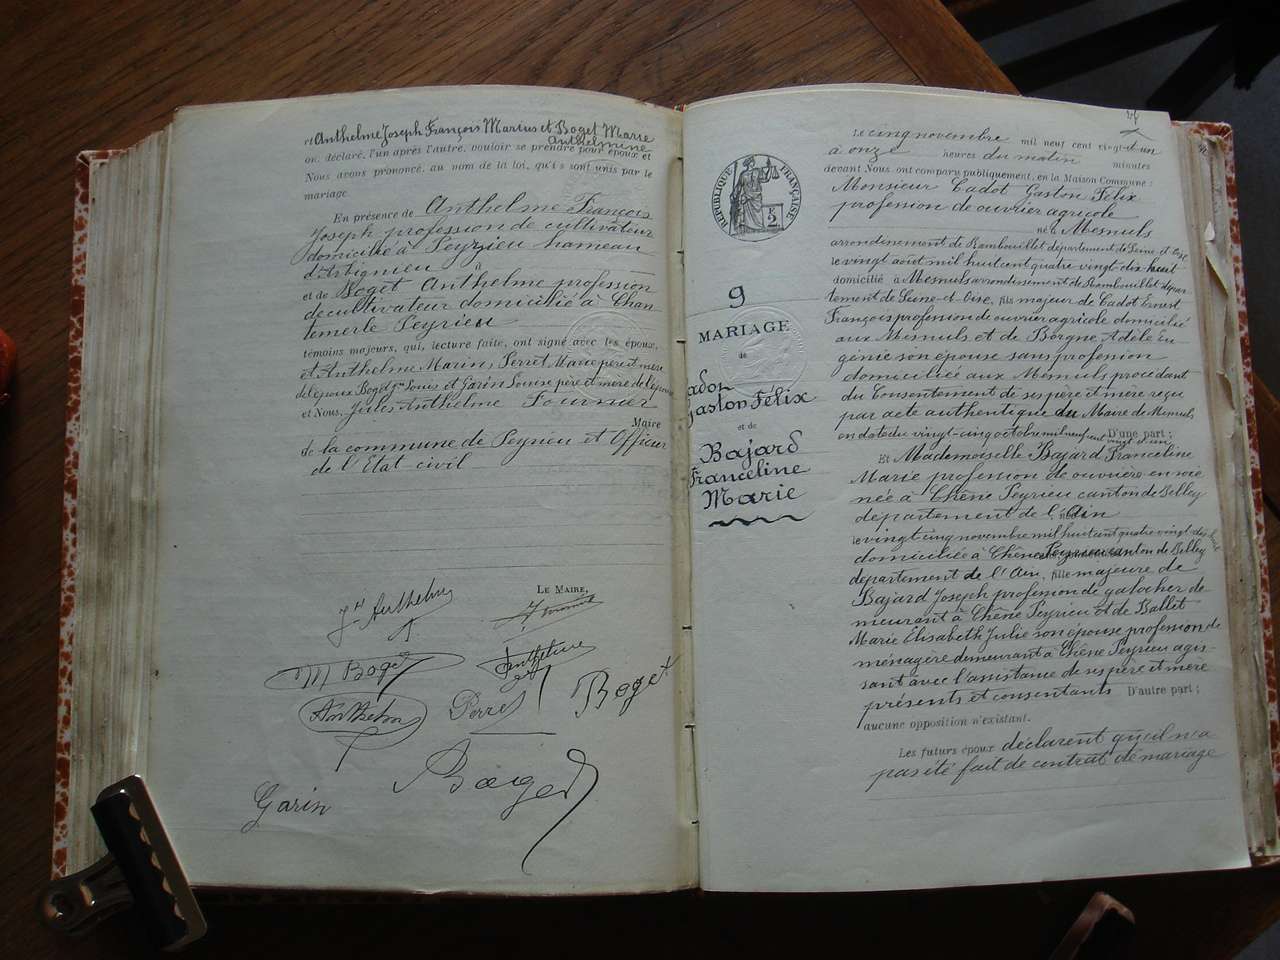 et Anthelme Joseph François Marius et Boget Marie
Anthelmine
ont déclaré, l'un après l'autre, vouloir se prendre pour époux et
Nous avons prononcé, au nom de la loi, qu'ils sont unis par le
mariage.
En présence de Anthelme François
Joseph profession de cultivateur
domicilié à Peyzieu hameau
d'Artignieu
et de Boget Anthelme profession
de cultivateur domicilié à Chan
temerle Peyrieu
témoins majeurs, qui, lecture faite, ont signé avec les époux,
et Anthelme Marin, Perret Marie père et mère
de l'époux Boget Jn Louis et Garin Louise père et mère de l'épouse
et Nous, Jules Anthelme Fournier
Maire
de la commune de Peyrieu et Officier
de l'Etat civil
LE MAIRE,
Jh Anthelme
M Boget
Anthelme
Perret
Boget
Boget
Garin
Le cinq novembre mil neuf cent vingt-et-un
à onze heures du matin minutes
devant Nous ont comparu publiquement, en la Maison Commune :
Monsieur Cadot Gaston Félix
profession de ouvrier agricole
né à Mesnuls
arrondissement de Rambouillet département de Seine et Oise
le vingt août mil huit cent quatre vingt dix huit
domicilié à Mesnuls arrondissement de Rambouillet dépar-
tement de Seine-et-Oise, fils majeur de Cadot Ernest
François profession de ouvrier agricole domicilié
aux Mesnuls et de Borgne Adèle Eu-
génie son épouse sans profession
domiciliée aux Mesnuls procédant
du Consentement de ses père et mère reçu
par acte authentique du Maire de Mesnuls
en date du vingt-cinq octobre mil neuf cent vingt et un D'une part ;
Et Mademoiselle Bajard Franceline
Marie profession de ouvrière en soie
née à Chêne Peyrieu canton de Belley
département de l'Ain
le vingt cinq novembre mil huit cent quatre vingt dix huit
domiciliée à Chêne Peyrieu canton de Belley
département de l'Ain, fille majeure de
Bajard Joseph profession de galocher de-
meurant à Chêne Peyrieu et de Ballet
Marie Elisabeth Julie son épouse profession de
ménagère demeurant à Chêne Peyrieu agis-
sant avec l'assistance de ses père et mère
présents et consentants D'autre part ;
aucune opposition n'existant.
Les futurs époux déclarent qu'il n'a
pas été fait de contrat de mariage
RÉPUBLIQUE FRANÇAISE
9
MARIAGE
de
adon
Gaston Félix
et de
Bajard
Franceline
Marie